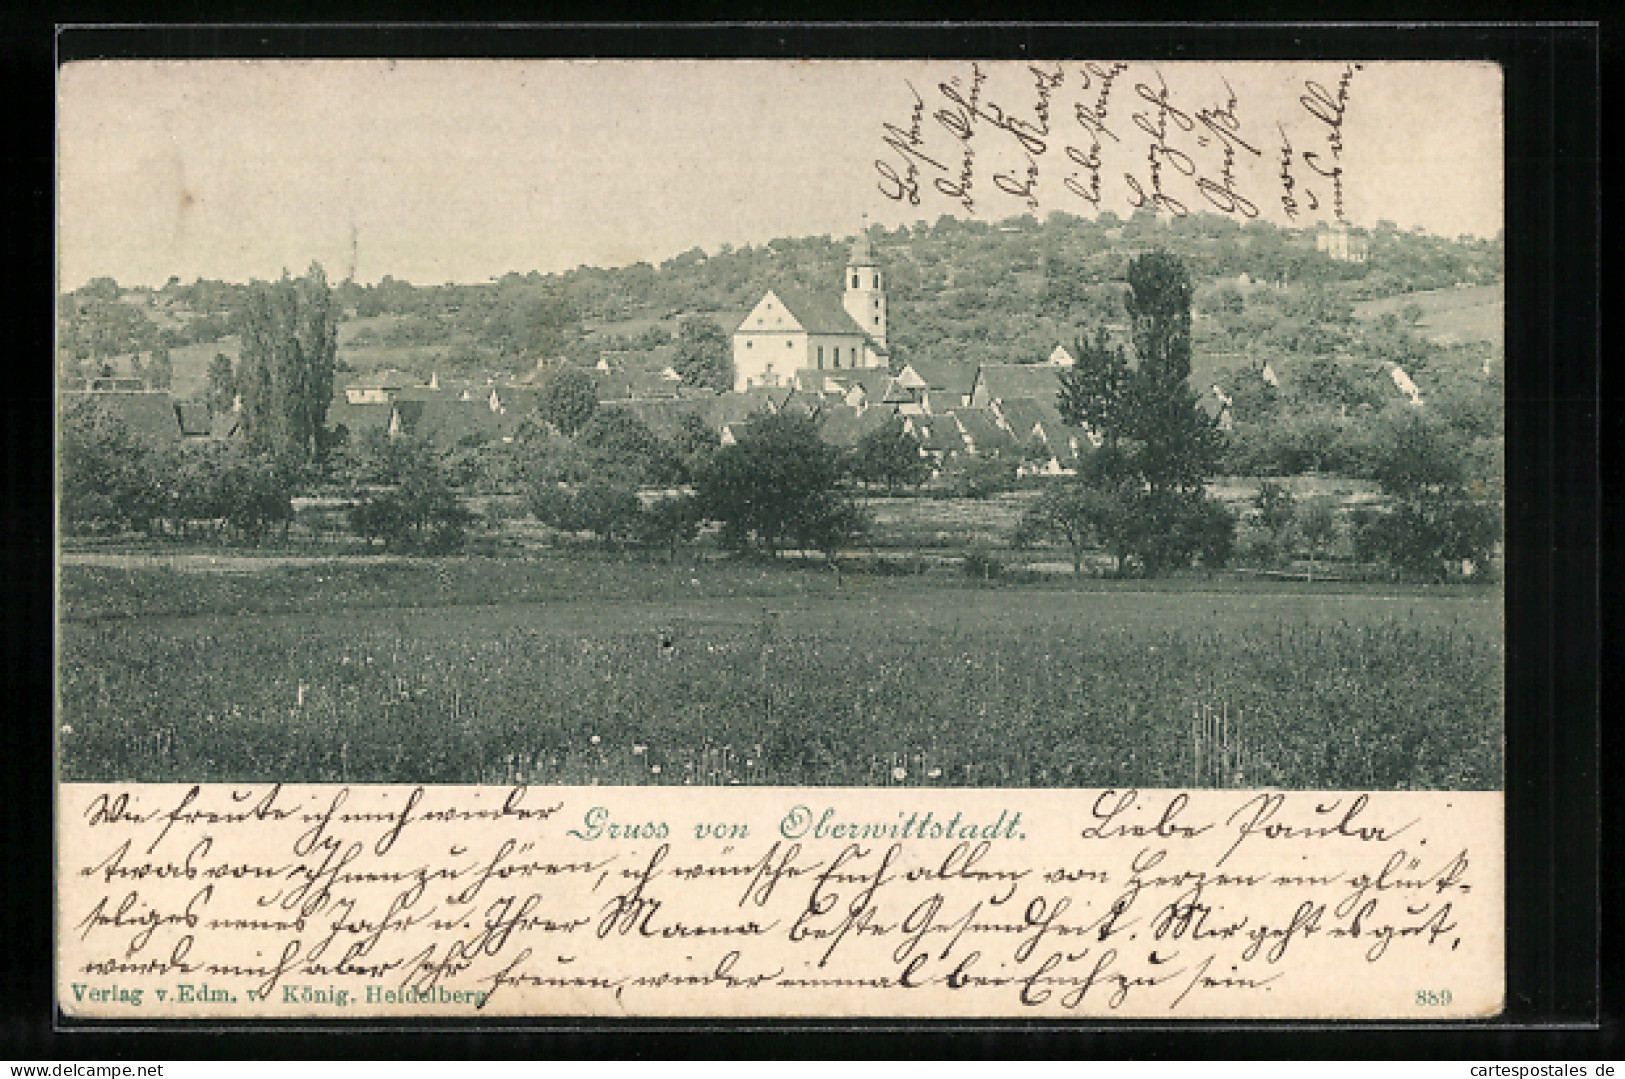 Besten
Dank für
die Karte
liebe Paula
Herzliche
Grüße
von
uns allen.
Gruss von Oberwittstadt.
Liebe Paula!
Wie freute ich mich wieder
etwas von Ihnen zu hören, ich wünsche Euch allen von Herzen ein glück-
seliges neues Jahr u. Ihrer Mama beste Gesundheit. Mir geht es gut,
würde mich aber sehr freuen, wieder einmal bei Euch zu sein.
Verlag v. Edm. v. König. Heidelberg
889
www.delcampe.net
cartespostales de